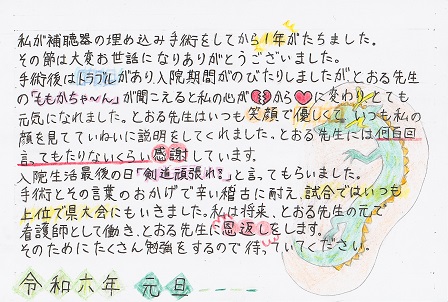 私が補聴器の埋め込み手術をしてから1年がたちました。
その節は大変お世話になりありがとうございました。
手術後はトラブルがあり入院期間がのびたりしましたがとおる先生
の「ももかちゃ〜ん」が聞こえると私の心が💔から❤に変わりとても
元気になれました。とおる先生はいつも笑顔で優しくて、いつも私の
顔を見てていねいに説明をしてくれました。とおる先生には何百回
言ってもたりないくらい感謝しています。
入院生活最後の日「剣道頑張れる?」と言ってもらいました。
手術とその言葉のおかげで辛い稽古に耐え、試合ではいつも
上位で県大会にもいきました。私は将来、とおる先生の元で
看護師として働き、とおる先生に恩返しをします。
そのためにたくさん勉強をするので待っていてください。
令和六年 元旦